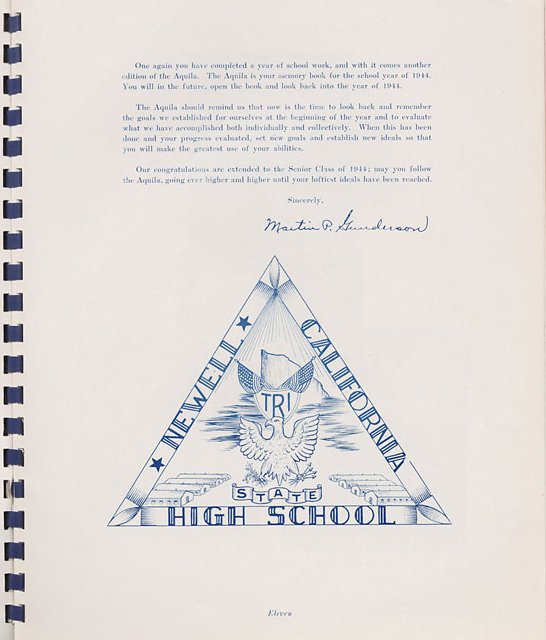 One again you have completed a year of school work, and with it comes another
edition of the Aquila. The Aquila is your memory book for the school year of 1944.
You will in the future, open the book and look back into the year of 1944.
The Aquila should remind us that now is the time to look back and remember
the goals we established for ourselves at the beginning of the year and to evaluate
what we have accomplished both individually and collectively. When this has been
done and your progress evaluated, set new goals and establish new ideals so that
you will make the greatest use of your abilities.
Our congratulations are extended to the Senior Class of 1944; may you follow
the Aquila, going ever higher and higher until your loftiest ideals have been reached.
Sincerely,
Martin P. Gunderson
NEWELL
CALIFORNIA
TRI
STATE
HIGH SCHOOL
Eleven